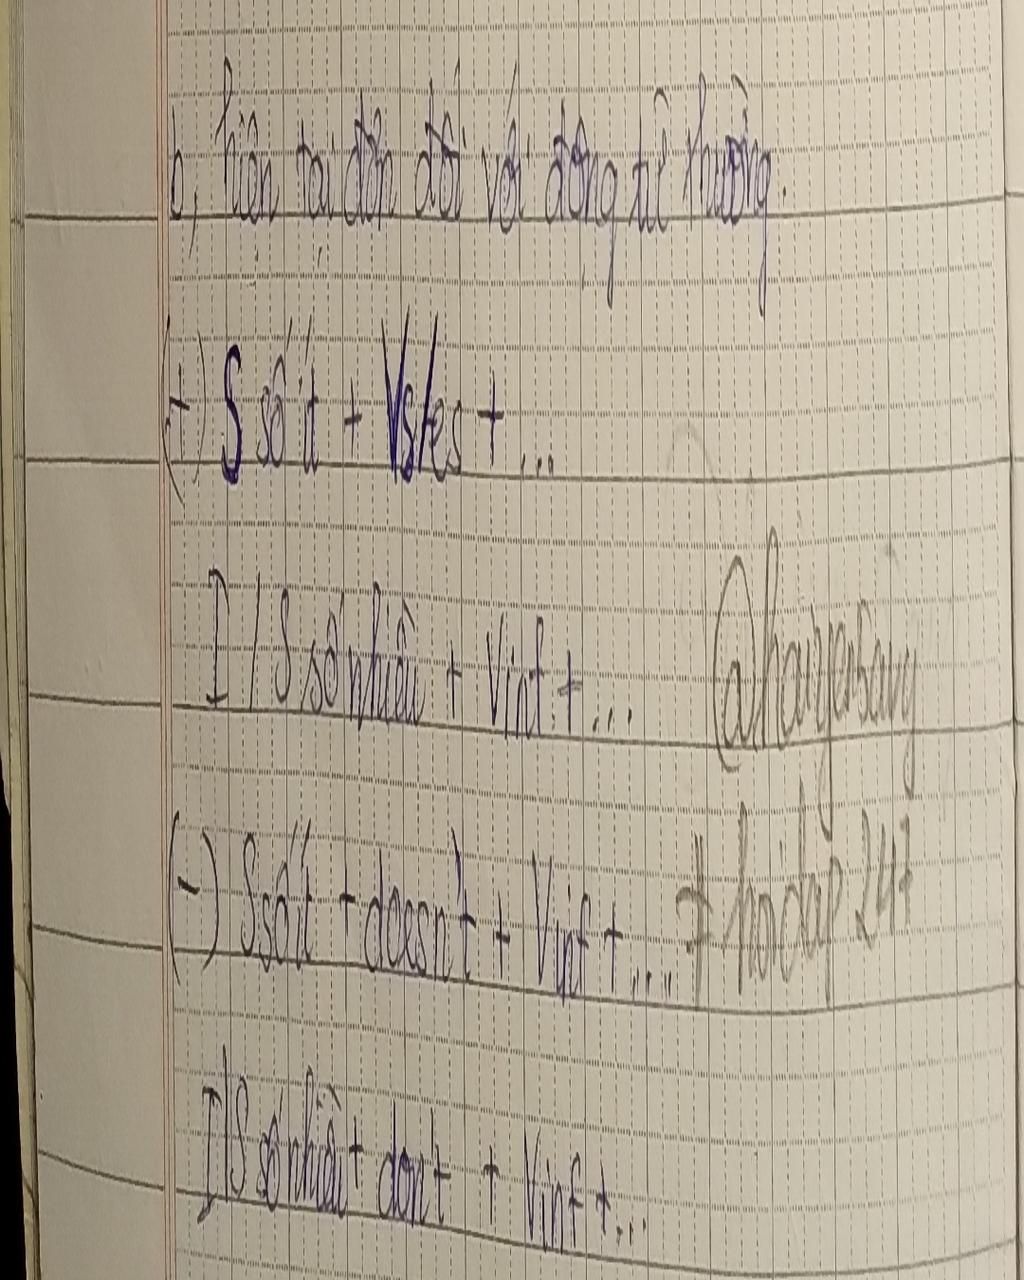 b, hiện tại đơn đối với động từ thường.
(+) S số ít + Vs/es + ...
I / S số nhiều + Vinf + ...
(-) S số ít + doesn't + Vinf + ....
# hoidap 247
I/S số nhiều + don't + Vinf + ...